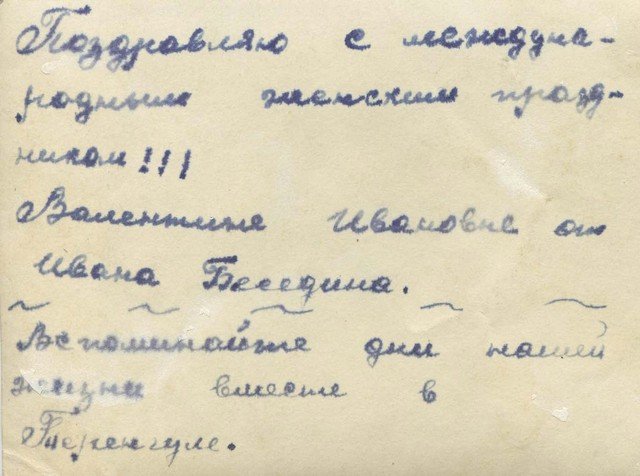 Поздравляю с междуна-
родным женским празд-
ником!!!
Валентине Ивановне от
Ивана Беседина.
Вспоминайте дни нашей
жизни вместе в
Теренгуле.